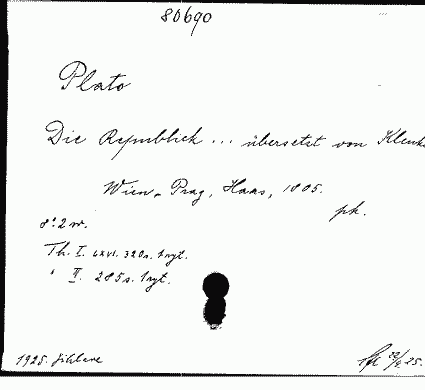 80690
Plato
Die Republick ... übersetzt von Kleuk
Wien, Prag, Haas, 1805.
ph.
8° 2 w.
Th. I. LXVI. 320 s. 1 ryt.
" II. 285 s. 1 ryt.
1925.
25.